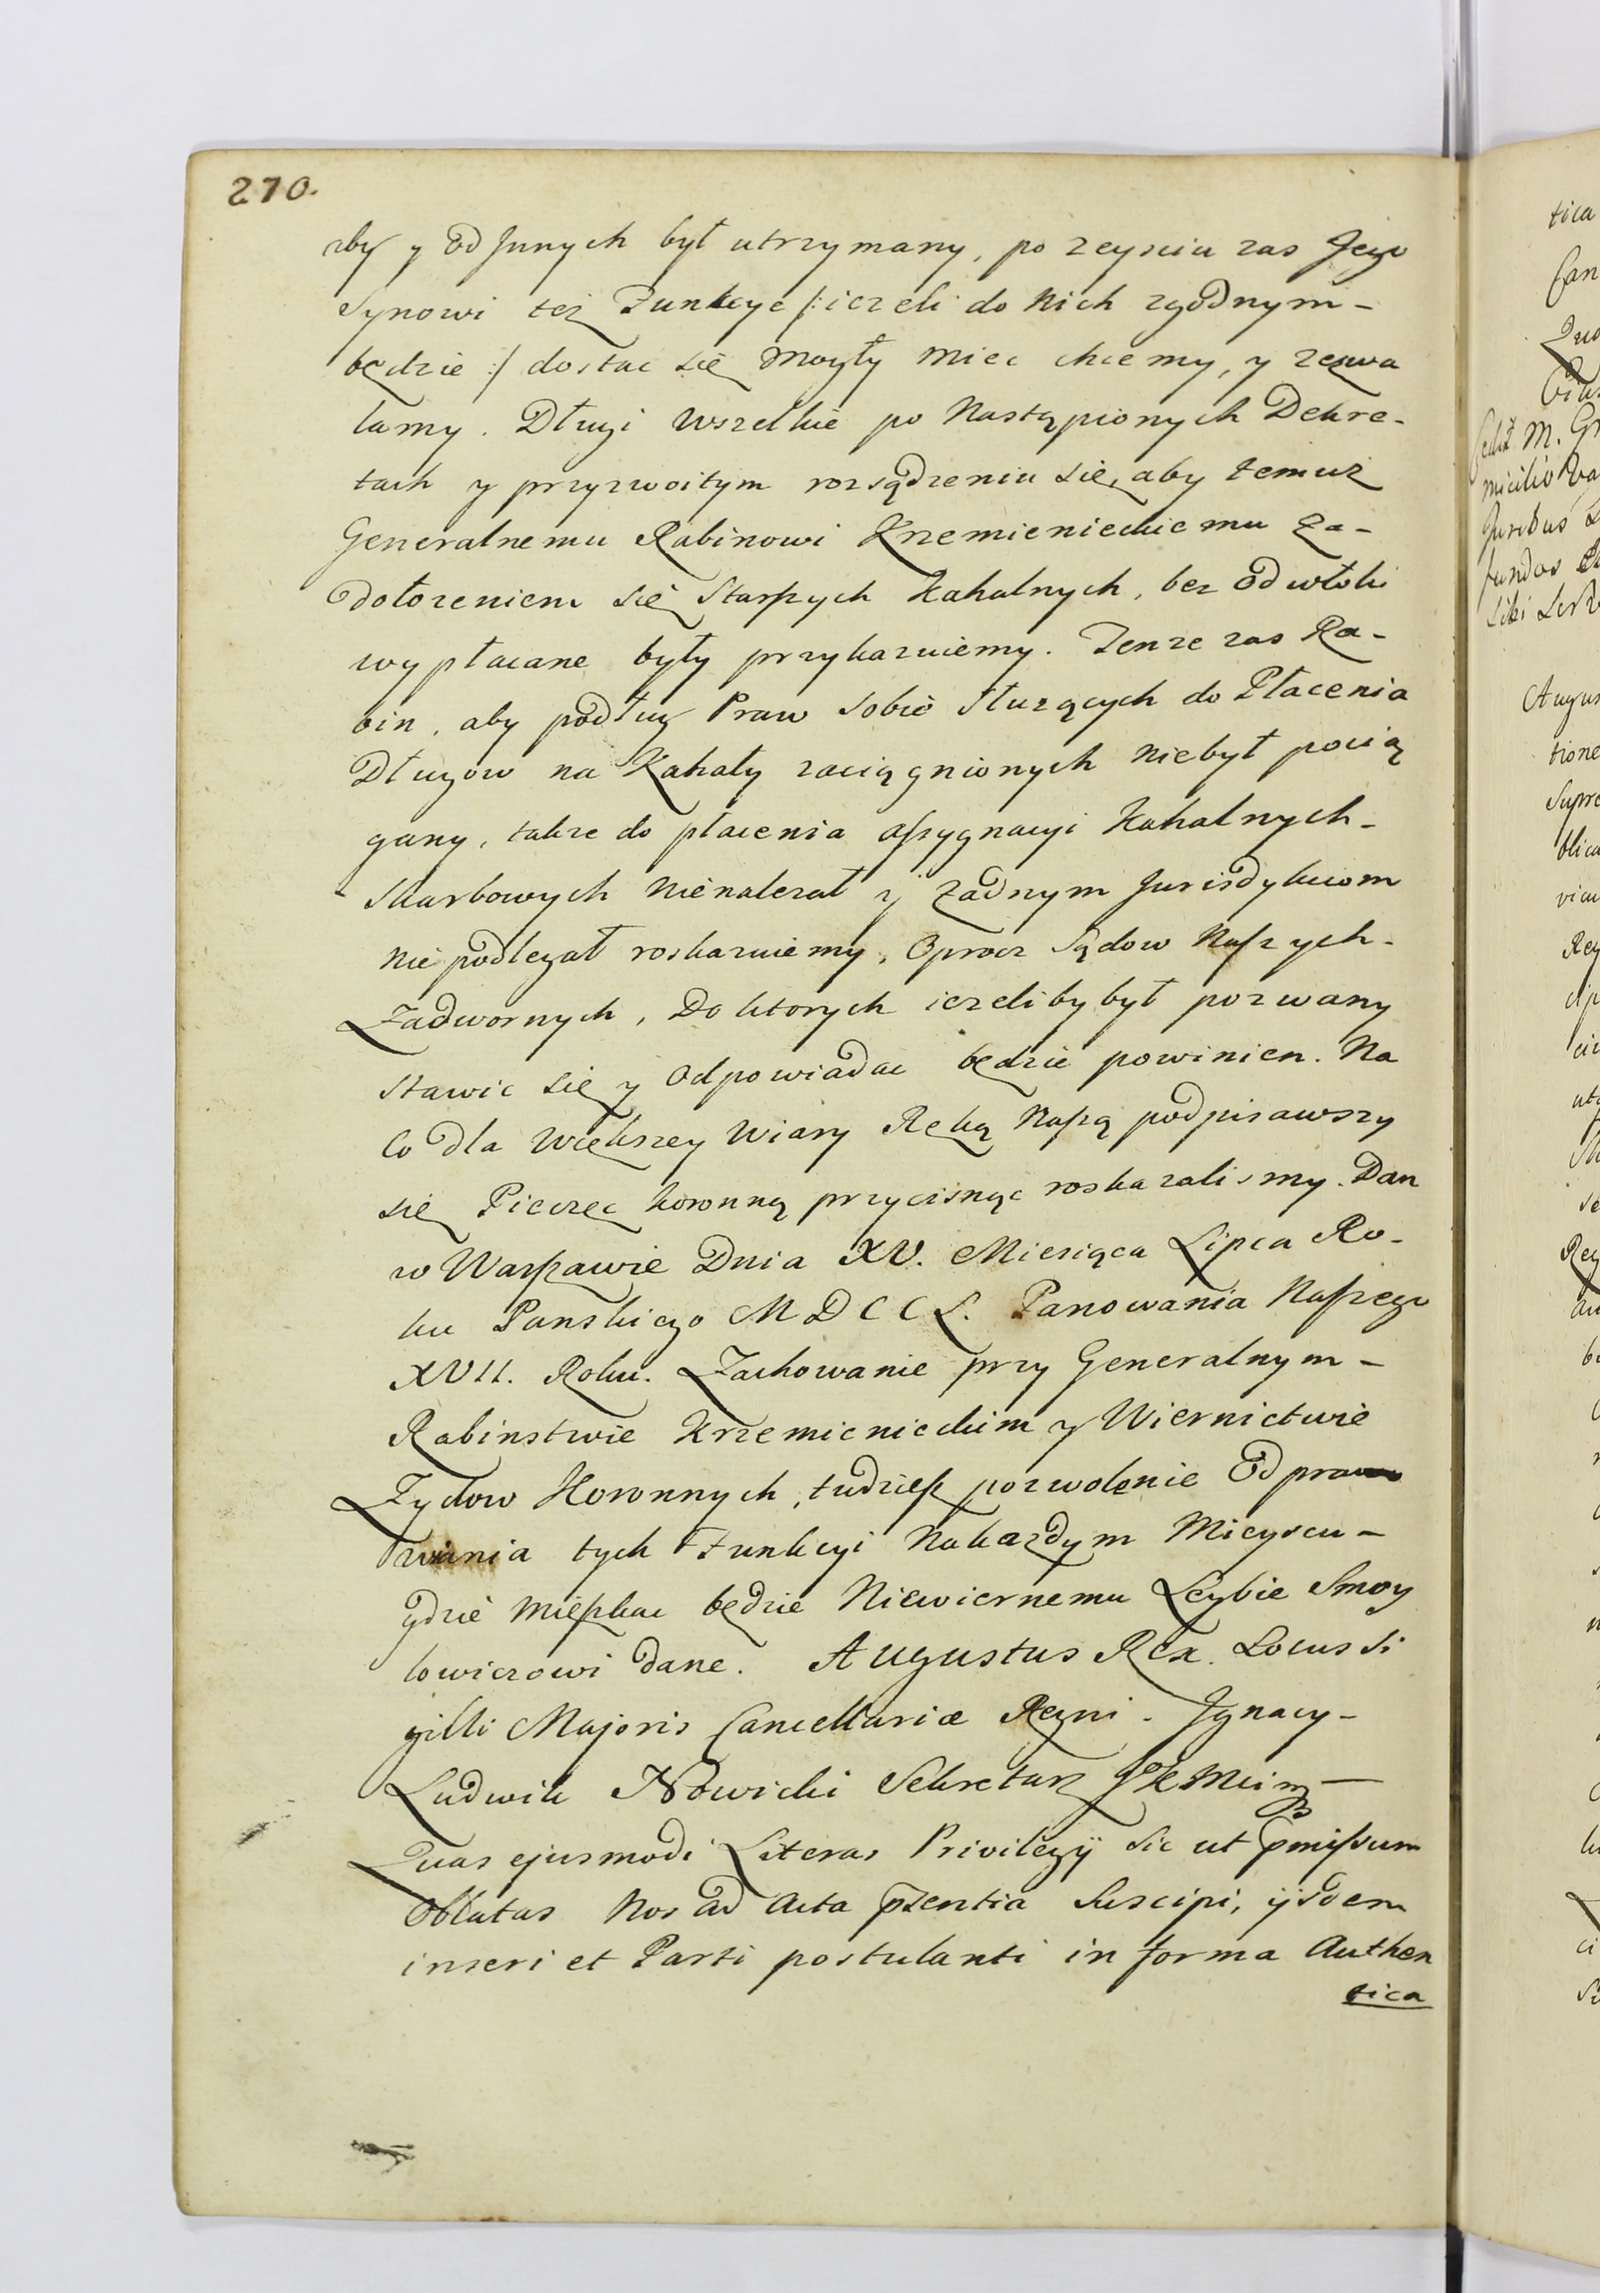 270.
aby y od Jnnych był utrzymany, po zeysciu zas Jego
Synowi tez Funkcye /: iezeli do Nich zgodnym -
będzie :/ dostac się mogły miec chcemy, y zezwa
lamy. Długi wszelkie po Nastąpionych Dekre-
tach y przyzwoitym rozsądzeniu się, aby temuz
Generalnemu Rabinowi Krzemienieckiemu za -
dołozeniem się Starszych Kahalnych, bez odwłoki
wypłacane były przykazuiemy. Tenze zas Ra-
bin, aby podług Praw sobie służących do Płacenia
Długow na Kahały zaciągnionych niebył pocią
gany, takze do płacenia assygnacyi Kahalnych -
Skarbowych nienalezał y zadnym Jurisdykciom
nie podlegał roskazuiemy, Oprocz Sądow Naszych -
Zadwornych, Do ktorych iezeliby był pozwany
stawic się y odpowiadac będzie powinien. Na
Co dla większey Wiary Ręką Naszą podpisawszy
się Pieczęc koronną przycisnąc roskazalismy. Dan
w Warszawie Dnia XV. Miesiąca Lipca Ro-
ku Panskiego MDCCL. Panowania Naszego
XVII. Roku. Zachowanie przy Generalnym -
Rabinstwie Krzemienieckim y Wiernictwie
Zydow Koronnych, tudziesz pozwolenie Odpra
wiania tych Funkcyi Nakazdym Mieyscu -
gdzie mieszkac będzie Niewiernemu Leybie Smoy
lowiczowi dane. Augustus Rex. Locus Si
gilli Majoris Cancellariæ Regni. Jgnacy -
Ludwik Nowicki Sekretarz JKMci
Quas ejusmodi Literas Privilegÿ sic ut pmissum
Oblatas Nos ad Acta pzentia Suscipi, ÿsdem
inseri et Parti postulanti in forma Authen
tica
tica
Augus
tione